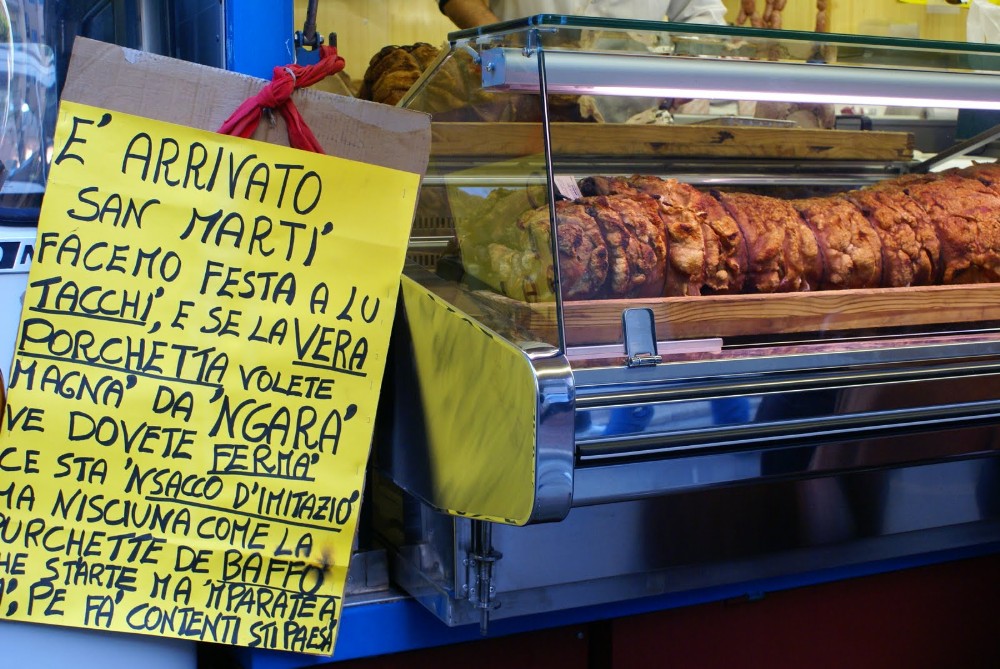 E' ARRIVATO
SAN MARTI'
FACEMO FESTA A LU
TACCHI', E SE LA VERA
PORCHETTA VOLETE
MAGNA' DA 'NGARA'
VE DOVETE FERMA'
CE STA 'N SACCO D'IMITAZIO'
MA NISCIUNA COME LA
PURCHETTE DE BAFFO
HE STARTE MA 'MPARATE A
', PE FA' CONTENTI STI PAESA'